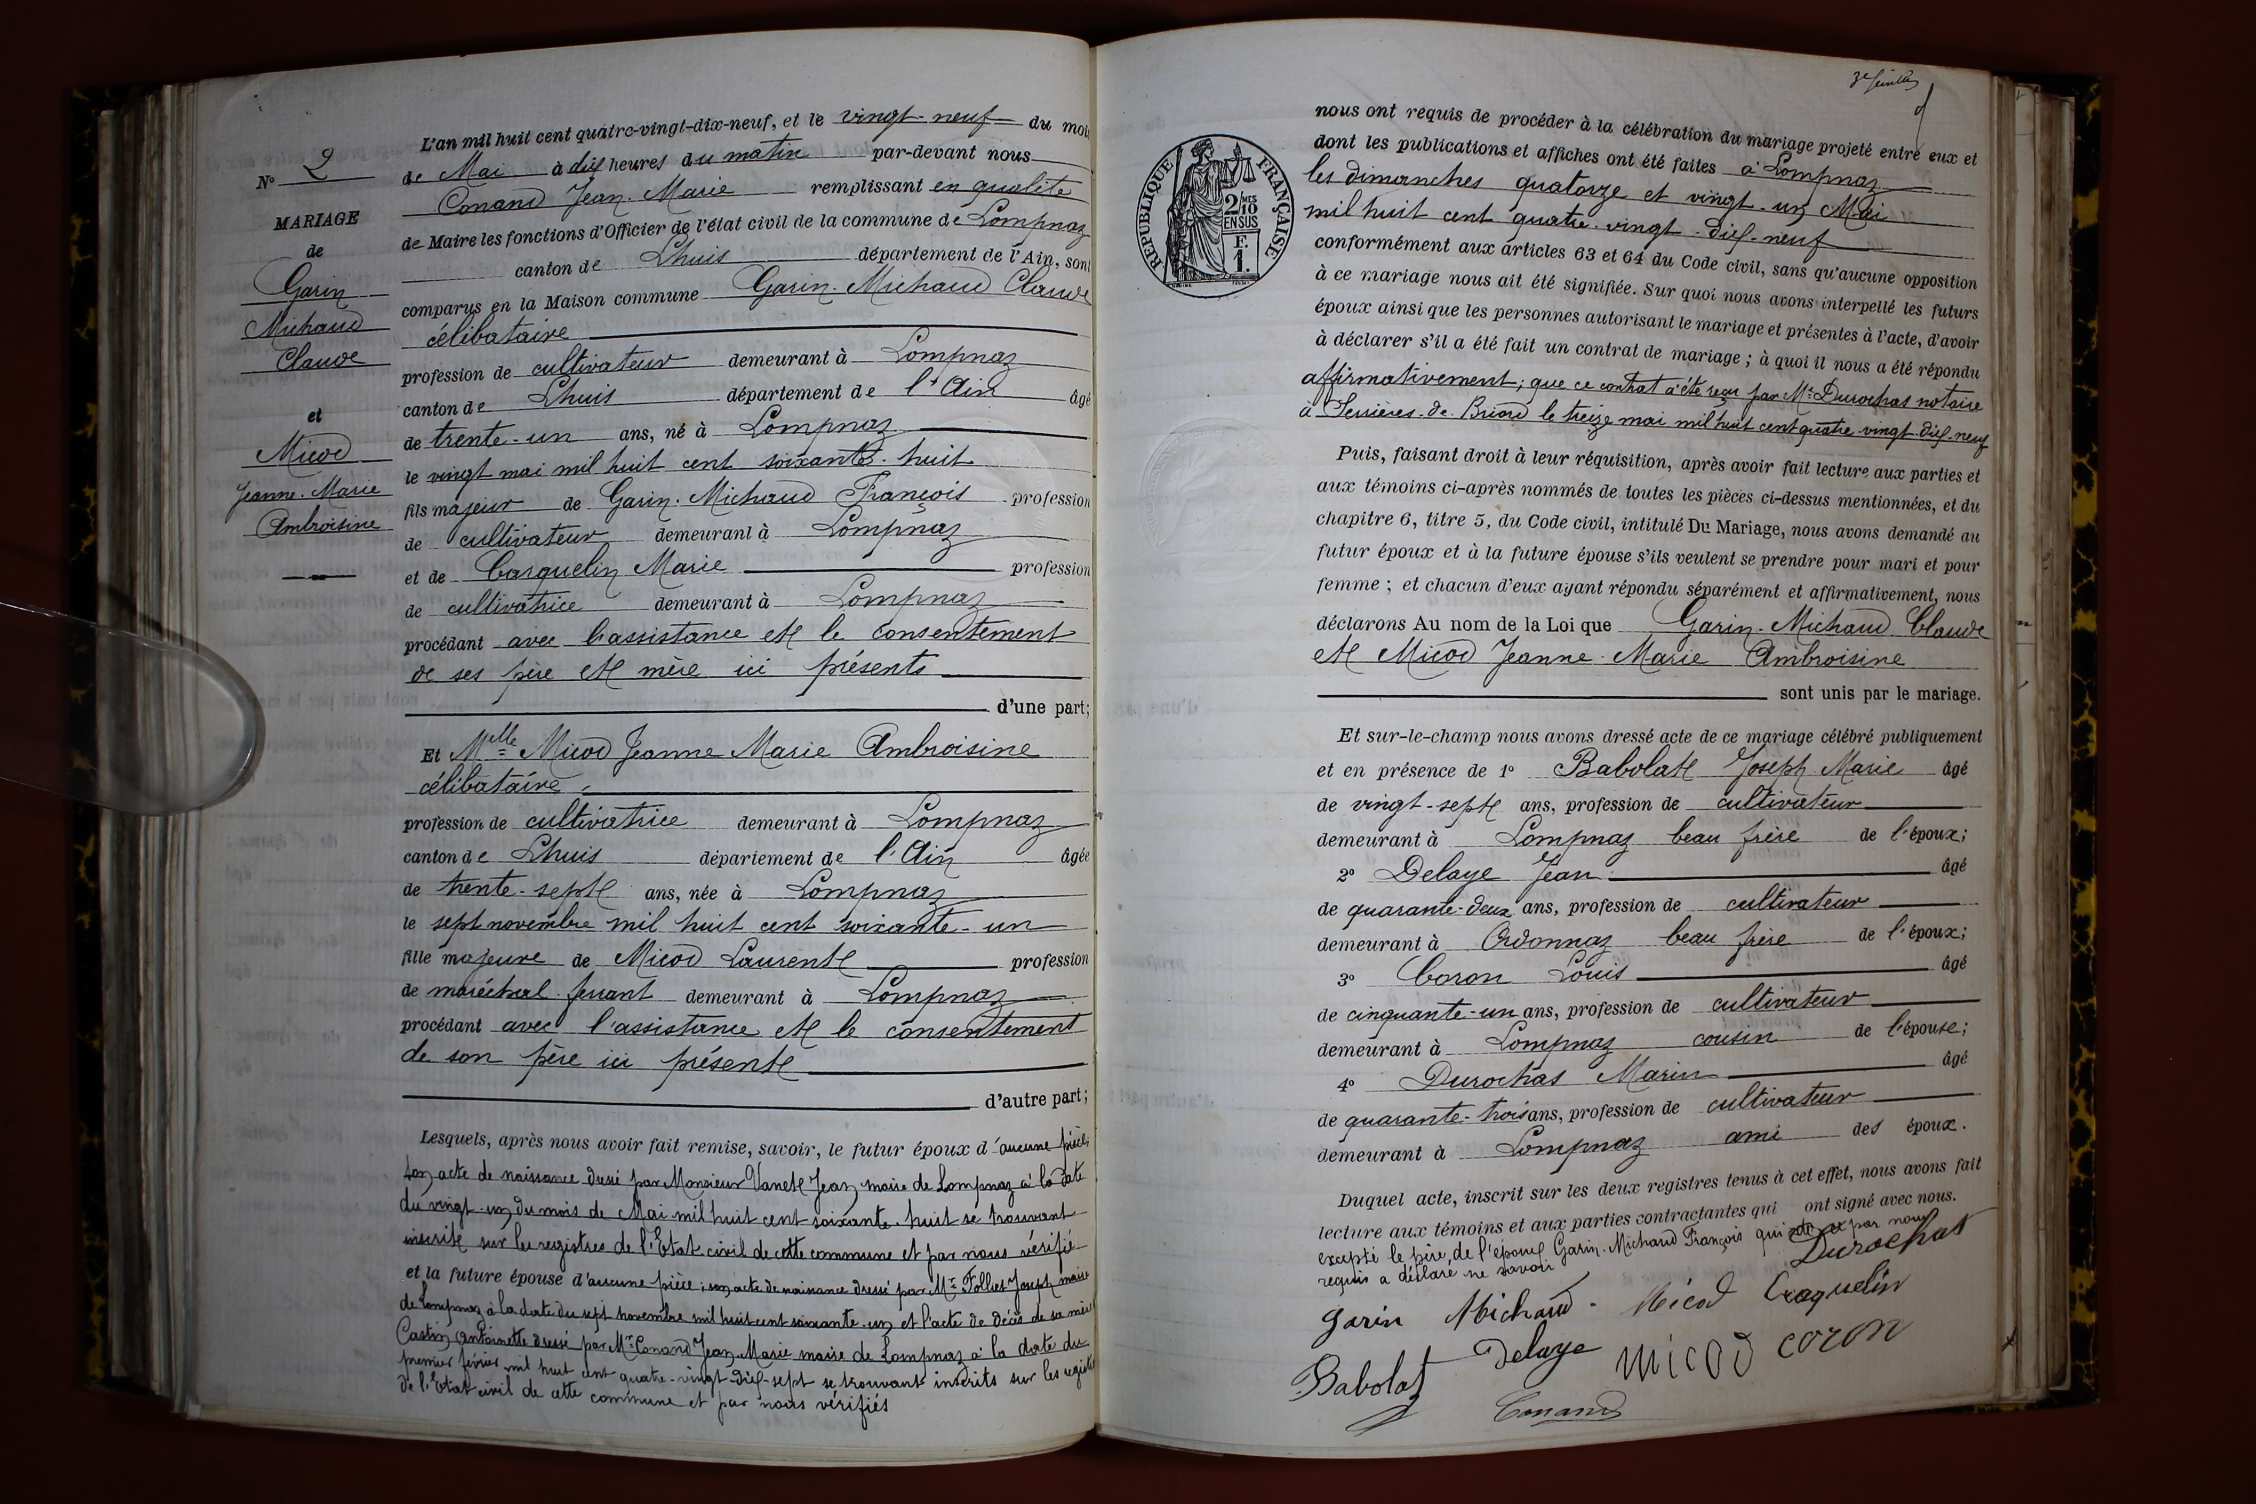 N° 2
MARIAGE
de
Garin
Michaud
Claude
et
Micod
Jeanne-Marie
Ambroisine
L'an mil huit cent quatre-vingt-dix-neuf, et le vingt-neuf du mois
de Mai à dix heures du matin par-devant nous
Conand Jean-Marie remplissant en qualité
de Maire les fonctions d'Officier de l'état civil de la commune de Lompnaz
canton de Lhuis département de l'Ain, sont
comparus en la Maison commune Garin-Michaud Claude
célibataire
profession de cultivateur demeurant à Lompnaz
canton de Lhuis département de l'Ain âgé
de trente-un ans, né à Lompnaz
le vingt mai mil huit cent soixante-huit
fils majeur de Garin-Michaud François profession
de cultivateur demeurant à Lompnaz
et de Carquelin Marie profession
de cultivatrice demeurant à Lompnaz
procédant avec l'assistance et le consentement
de ses père et mère ici présents
d'une part;
Et Melle Micod Jeanne Marie Ambroisine
célibataire
profession de cultivatrice demeurant à Lompnaz
canton de Lhuis département de l'Ain âgée
de trente-sept ans, née à Lompnaz
le sept novembre mil huit cent soixante-un
fille majeure de Micod Laurent profession
de maréchal-ferrant demeurant à Lompnaz
procédant avec l'assistance et le consentement
de son père ici présent
d'autre part;
Lesquels, après nous avoir fait remise, savoir, le futur époux d'aucune pièce,
son acte de naissance dressé par Monsieur Vanet Jean maire de Lompnaz à la date
du vingt-un du mois de Mai mil huit cent soixante-huit se trouvant
inscrit sur les registres de l'Etat civil de cette commune et par nous vérifié
et la future épouse d'aucune pièce; son acte de naissance dressé par Mr Folliet Joseph maire
de Lompnaz à la date du sept novembre mil huit cent soixante-un et l'acte de décès de sa mère
Castin Antoinette dressé par Mr Conand Jean Marie maire de Lompnaz à la date du
premier février mil huit cent quatre-vingt-dix-sept se trouvant inscrits sur les registres
de l'Etat civil de cette commune et par nous vérifiés
3e feuillet
RÉPUBLIQUE FRANÇAISE
2 MES
10
EN SUS
F.
1.
nous ont requis de procéder à la célébration du mariage projeté entre eux et
dont les publications et affiches ont été faites à Lompnaz
les dimanches quatorze et vingt-un Mai
mil huit cent quatre-vingt-dix-neuf
conformément aux articles 63 et 64 du Code civil, sans qu'aucune opposition
à ce mariage nous ait été signifiée. Sur quoi nous avons interpellé les futurs
époux ainsi que les personnes autorisant le mariage et présentes à l'acte, d'avoir
à déclarer s'il a été fait un contrat de mariage; à quoi il nous a été répondu
affirmativement; que ce contrat a été reçu par Me Durochas notaire
à Serrières-de-Briord le treize mai mil huit cent quatre-vingt-dix-neuf
Puis, faisant droit à leur réquisition, après avoir fait lecture aux parties et
aux témoins ci-après nommés de toutes les pièces ci-dessus mentionnées, et du
chapitre 6, titre 5, du Code civil, intitulé Du Mariage, nous avons demandé au
futur époux et à la future épouse s'ils veulent se prendre pour mari et pour
femme; et chacun d'eux ayant répondu séparément et affirmativement, nous
déclarons Au nom de la Loi que Garin-Michaud Claude
et Micod Jeanne-Marie Ambroisine
sont unis par le mariage.
Et sur-le-champ nous avons dressé acte de ce mariage célébré publiquement
et en présence de 1° Babolat Joseph Marie âgé
de vingt-sept ans, profession de cultivateur
demeurant à Lompnaz beau frère de l'époux;
2° Delaye Jean âgé
de quarante-deux ans, profession de cultivateur
demeurant à Ordonnaz beau frère de l'époux;
3° Coron Louis âgé
de cinquante-un ans, profession de cultivateur
demeurant à Lompnaz cousin de l'épouse;
4° Durochas Marin âgé
de quarante-trois ans, profession de cultivateur
demeurant à Lompnaz ami des époux.
Duquel acte, inscrit sur les deux registres tenus à cet effet, nous avons fait
lecture aux témoins et aux parties contractantes qui ont signé avec nous.
excepté le père de l'époux Garin-Michaud François qui par nous
requis a déclaré ne savoir
Durochat
Garin Michaud Micod Craquelin
Babolat Delaye Micod Coron
Conand